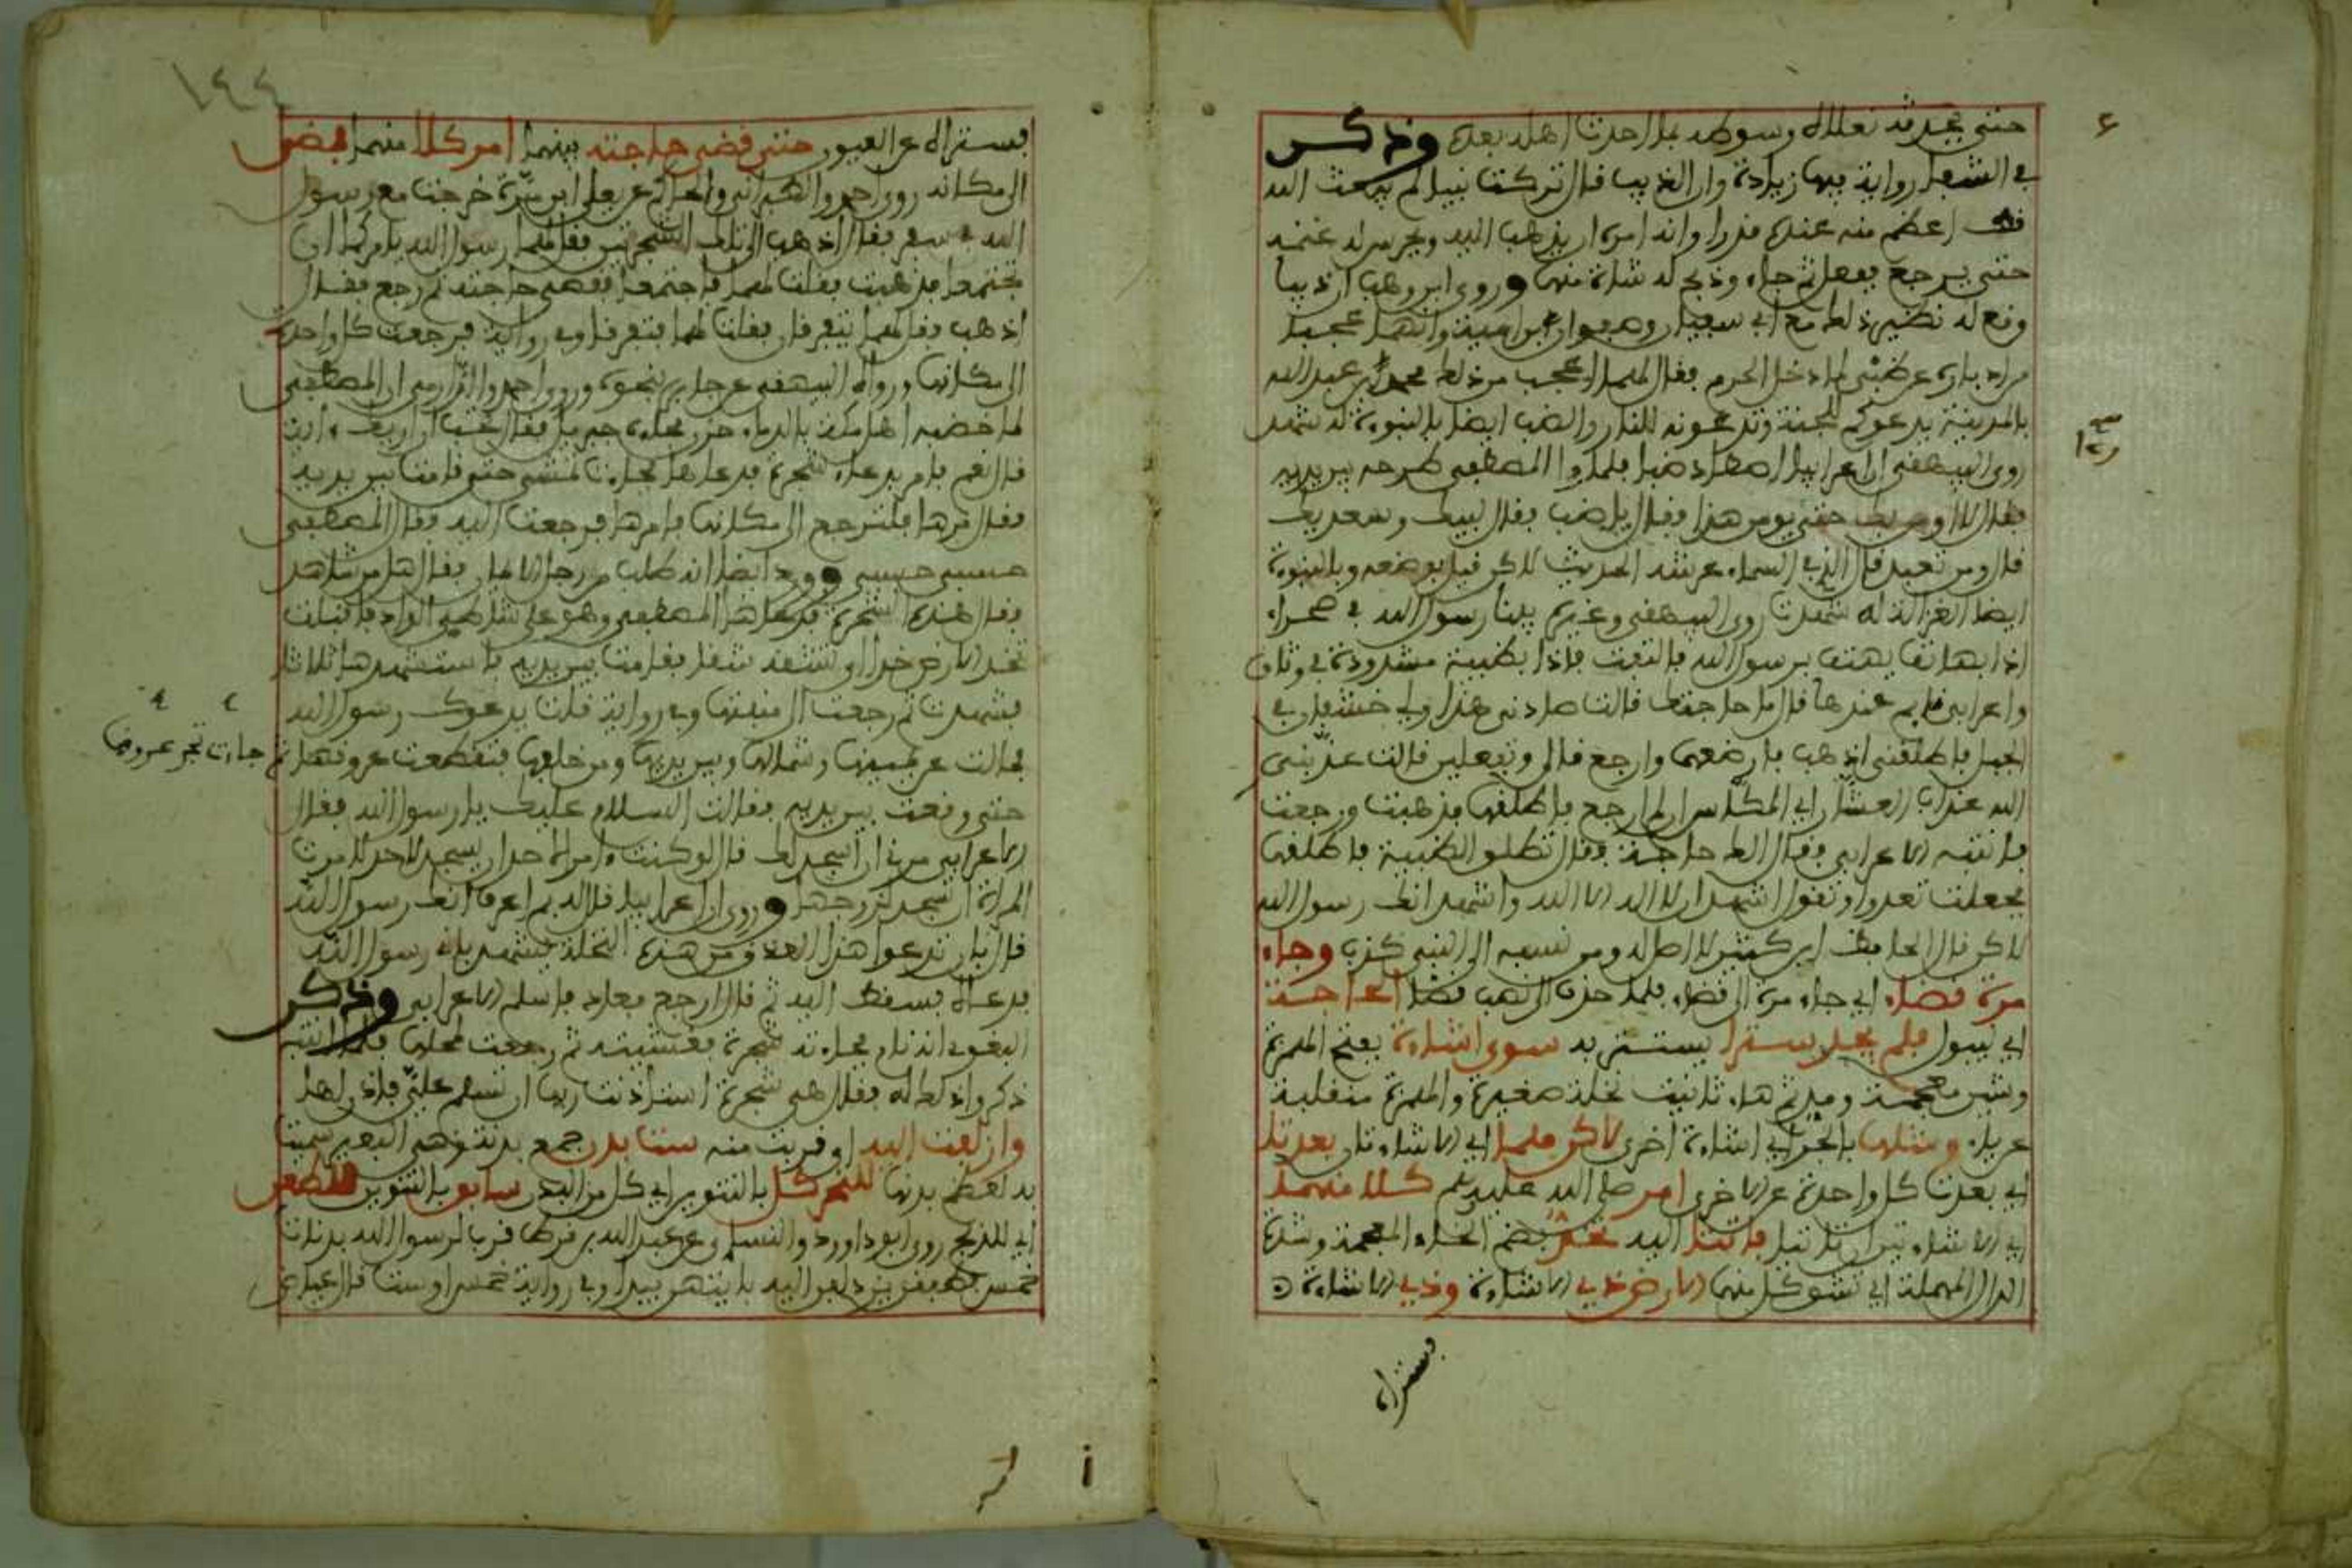 حتى تحدثه نعلاه وسوطه بما احدث اهله بعده وذكر
في الشفا رواية فيها زيادة وان الذيب قال تركت نبيا لم يبعث الله
قط اعظم منه عنده قدرا وانه امره ان يذهب اليه ويحرس له غنمه
حتى يرجع ففعل ثم جاء وذبح له شاة منها وروى ابن وهب ان ذيبا
وقع له نظير ذلك مع ابي سفيان وصفوان بن امية وانهما عجبا
من ادباره عن ظبي لما دخل الحرم فقال لهما اعجب من ذلك محمد بن عبد الله
بالمدينة يدعوكم للجنة وتدعونه للنار والضب ايضا بالنبوة له شهد
روى البيهقي ان اعرابيا اصطاد ضبا فلما راا المصطفى طرحه بين يديه
فقال لا اومن بك حتى يومن هذا فقال يا ضب فقال لبيك وسعديك
قال ومن تعبد قال الذي في السماء عرشه الحديث لاكن قيل بوضعه وبالنبوة
ايضا الغزالة له شهدت روى البيهقي وغيره بينا رسول الله في صحراء
اذا بهاتف يهتف برسول الله فالتفت فاذا بظبية مشدودة في وثاق
واعرابي نايم عندها قال ما حاجتك قالت صادني هذا ولي خشفان في
الجبل فاطلقني اذهب فارضعهما وارجع قال او تفعلين قالت عذبني
الله عذاب العشار اي المكاس ان لم ارجع فاطلقها فذهبت ورجعت
فانتبه الاعرابي فقال الك حاجة فقال تطلق الظبية فاطلقها
فجعلت تعدوا وتقول اشهد ان لا اله الا الله واشهد انك رسول الله
لاكن قال الحافظ ابن كثير لا اصل له ومن نسبه الى النبي كذب وجاء
مرة فضاء اي جاء مرة الى فضاء فلما حذف الى نصب فضا لحاجة
اي لبول فلم يجد سترا يستتر به سوى اشاءة بفتح الهمزة
وشين معجمة ومد ثم هاء تانيث نخلة صغيرة والهمزة منقلبة
عن ياء ومثلها بالجر اي اشاءة اخرى لاكن هما اي الاشاءتان بعدتا
اي بعدت كل واحدة عن الاخرى امر صلى الله عليه وسلم كلا منهما
اي الاشاءتين ان تاتيا فاتتا اليه تخد بضم الخاء المعجمة وشدة
الدال المهملة اي تشق كل منهما الارض ذي الاشاءة وذي الاشاءة
يستران
١٤٤
يستران عن العيون حتى قضى حاجته بينهما امر كلا منهما فمضى
الى مكانه روى احمد والطبراني والحاكم عن يعلى ابن مرة خرجت مع رسول
الله في سفر فقال اذهب الى تلك الشجرتين فقل لهما رسول الله يامركما ان
تجتمعا فذهبت فقلت لهما فاجتمعا فقضى حاجته ثم رجع فقال
اذهب فقل لهما يتفرقا فقلت لهما فتفرقا وفي رواية فرجعت كل واحدة
الى مكانها ورواه البيهقي عن جابر بنحوه وروى احمد والدارمي ان المصطفى
لما خضبه اهل مكة بالدماء حزن فجاءه جبريل فقال اتحب ان اريك ءاية
قال نعم فامر بدعاء شجرة فدعاها فجاءت تمشي حتى قامت بين يديه
فقال مرها فلترجع الى مكانها فامرها فرجعت اليه فقال المصطفى
حسبي حسبي وورد ايضا انه طلب من رجل الايمان فقال هل من شاهد
فقال هذه الشجرة فدعاها المصطفى وهو على شاطئ الواد فاقبلت
تخد الارض خدا او تشقه شقا فقامت بين يديه فاستشهدها ثلاثا
فشهدت ثم رجعت الى منبتها وفي رواية قلت يدعوك رسول الله
فمالت عن يمينها وشمالها وبين يديها ومن خلفها فتقطعت عروقها ثم جاءت تجر عروقها
حتى وقفت بين يديه فقالت السلام عليك يا رسول الله فقال
الاعرابي مرني ان اسجد لك قال لو كنت ءامر احدا ان يسجد لاحد لامرت
المراة ان تسجد لزوجها وروى ان اعرابيا قال له بم اعرف انك رسول الله
قال بان تدعوا هذا العذق من هذه النخلة فيشهد باني رسول الله
فدعاه فسقط اليه ثم قال ارجع فعاد فاسلم الاعرابي وذكر
البغوي انه نام فجاءته شجرة فغشيته ثم رجعت لمحلها فلما انتبه
ذكروا ذلك له فقال هي شجرة استاذنت ربها ان تسلم علي فاذن لها
وازلفت اليه او قربت منه ست بدن جمع بدنة وهي البعير سميت
به لعظم بدنها للنحر كل بالتنوين اي كل من البدن سابق بالتنوين للطعن
اي للذبح روى ابو داوود والنسائي عن عبد الله بن قرط قرب لرسول الله بدنات
خمس فطفقن يزدلفن اليه بايتهن يبدا وفي رواية خمس او ست قال